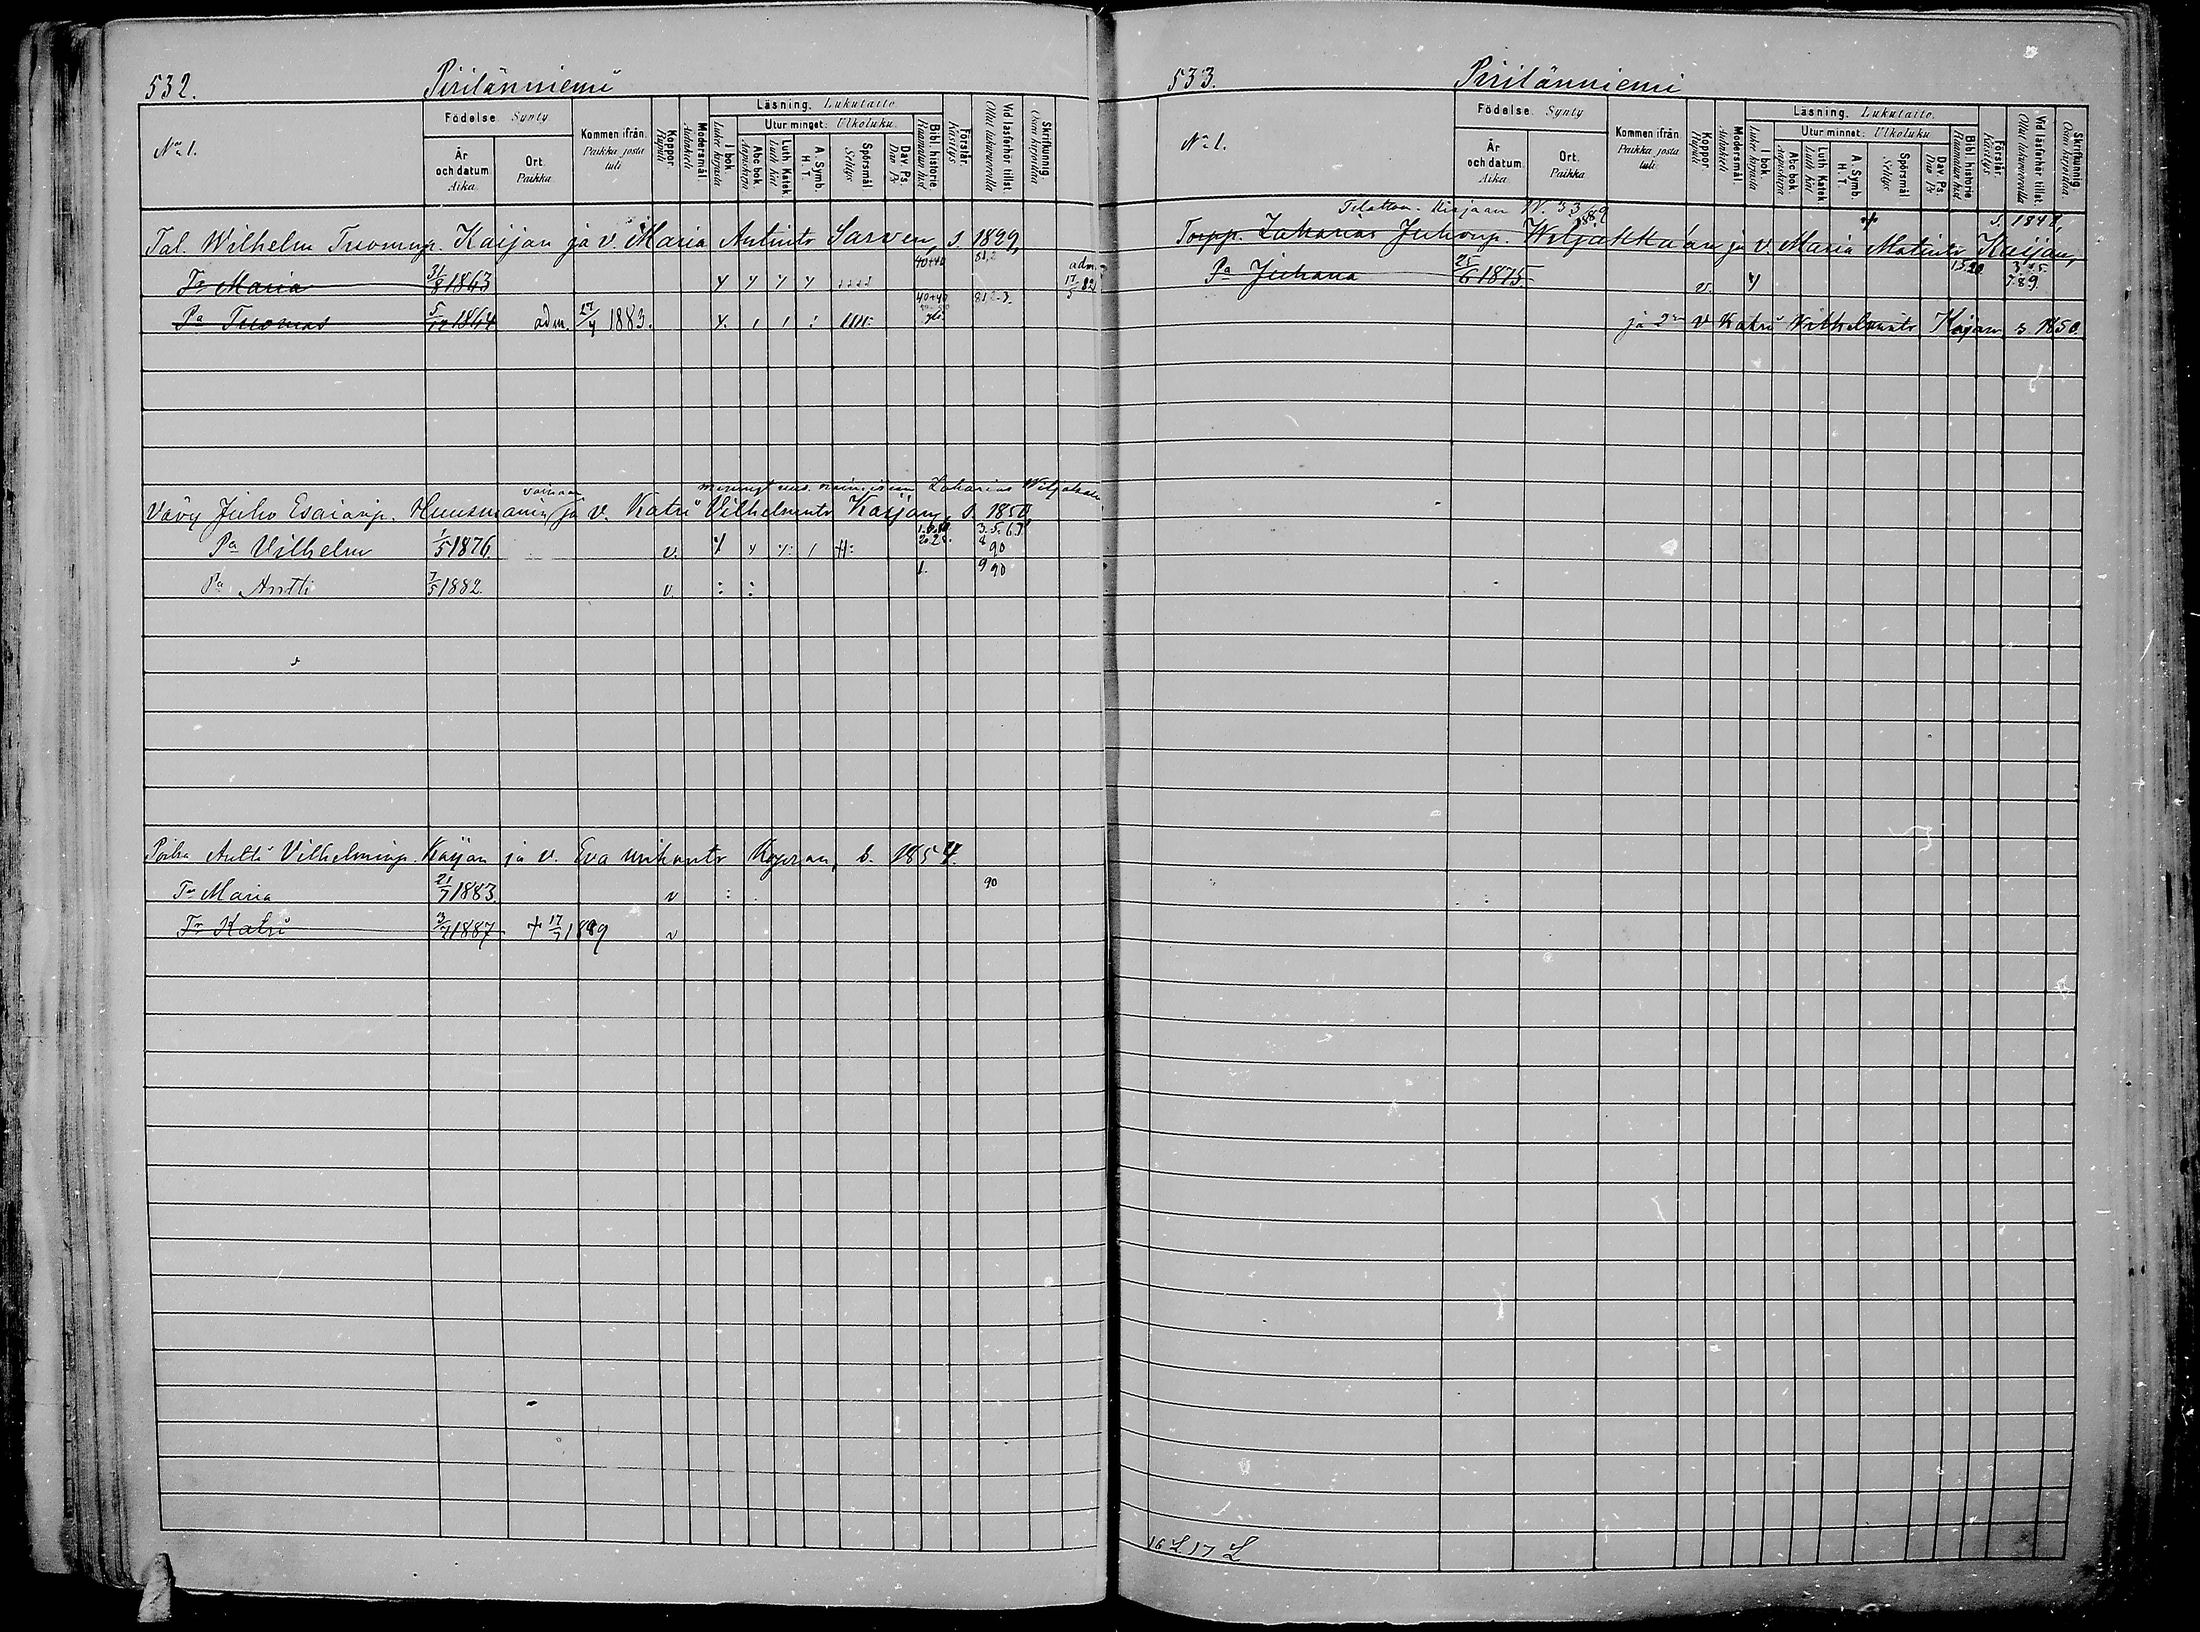 532. Pirilänniemi
No 1.
Födelse. Synty
År och datum. Aika.
Ort. Paikka.
Kommen ifrån. Paikka josta tuli.
Koppor. Rupuli
Modersmål. Äidinkieli
Läsning. Lukutaito.
I bok. Lukee kirjasta
Utur minnet. Ulkoluku.
Abc bok. Aapiskirja
Luth. Katek. Luth. kat.
A. Symb. H. T.
Spörsmål. Selitys
Dav. Ps. Dav. Ps.
Bibl. historie. Raamatun hist.
Förstår. Käsitys
Vid läsförhör tillst. Ollut lukuvuorolla
Skrifkunnig. Osaa kirjoittaa
Tal. Wilhelm Tuomasp. Kaijan ja v. Maria Antintr Sarven, s. 1829,
Tr Maria 31/8 1863 40+40 81,2 adm. 17/5 82
Pa Tuomas 1864 adm. 1883. 40+40 81.2.3.
vainaan
Vävy Juho Esaianp. Huusmanin ja v. Katri Vilhelmintr Kaijan, s. 1850
Pa Vilhelm 1/5 1876. v. 3.5.6.7 8 90
Pa Antti 7/5 1882. v. 1. 9 90
Poika Antti Vilhelminp. Kaijan ja v. Eva s. 1854.
Tr Maria 21/7 1883. v 90
Tr Katri 3/7 1887 + 17/7 1889 v
533. Pirilänniemi
No 1.
Födelse. Synty
År och datum. Aika.
Ort. Paikka.
Kommen ifrån. Paikka josta tuli.
Koppor. Rupuli
Modersmål. Äidinkieli
Läsning. Lukutaito.
I bok. Lukee kirjasta
Utur minnet. Ulkoluku.
Abc bok. Aapiskirja
Luth. Katek. Luth. kat.
A. Symb. H. T.
Spörsmål. Selitys
Dav. Ps. Dav. Ps.
Bibl. historie. Raamatun hist.
Förstår. Käsitys
Vid läsförhör tillst. Ollut lukuvuorolla
Skrifkunnig. Osaa kirjoittaa
Kirjaan N. 33 /89 s. 1848,
Torpp. Zakarias Juhonp. Wiljakka'an ja v. Maria Matintr Kaijan,
Pa Juhana 25/6 1875 v. 7.8.9.
ja 2en v. Katri Wilhelmintr Kaijan s. 1850.
16 L 17 L